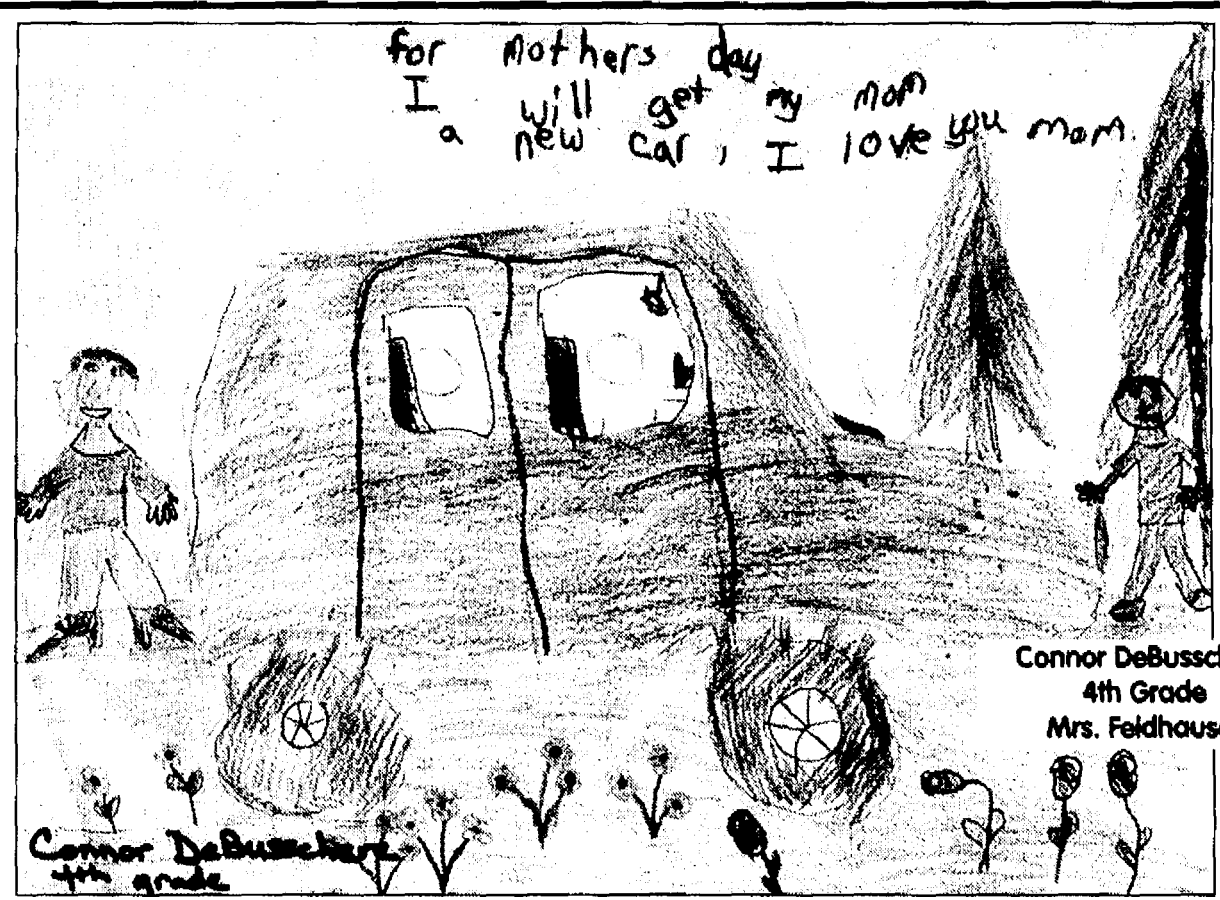 for mothers day
I will get my mom
a new car, I love you mom.
Connor DeBussch
4th Grade
Mrs. Feldhaus
Connor DeBusschere
4th grade